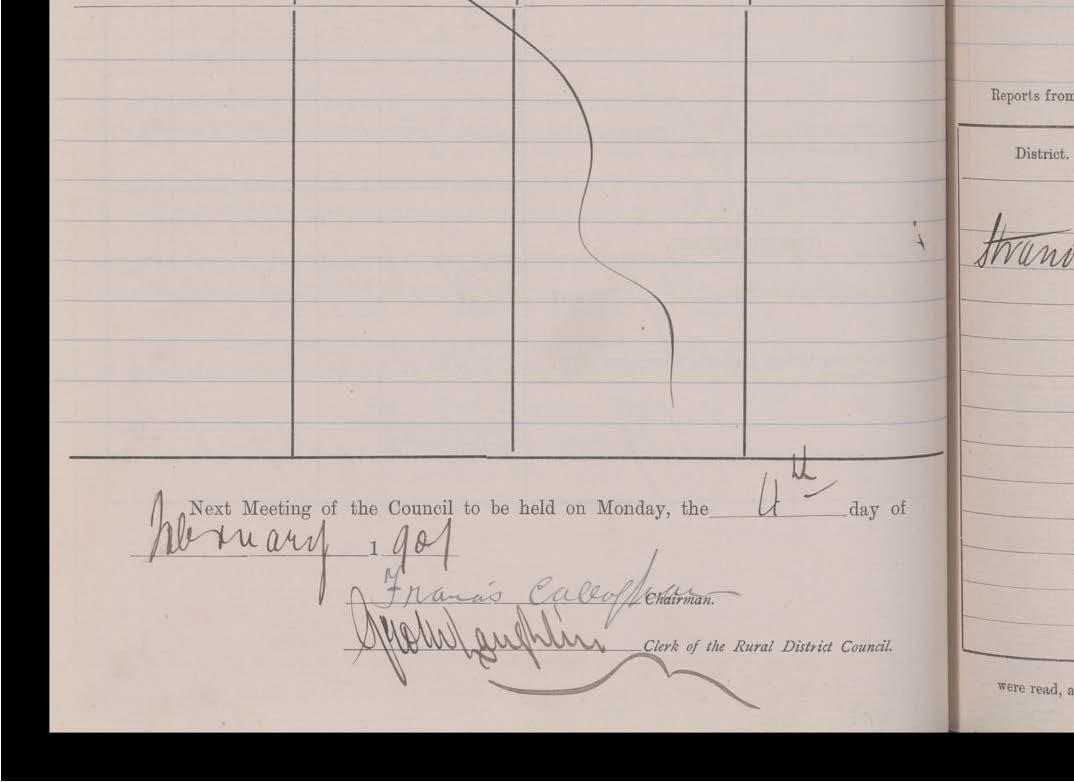 Next Meeting of the Council to be held on Monday, the 4th day of
February 1901
Francis Callaghan Chairman.
Geo McLaughlin Clerk of the Rural District Council.
Reports from
District.
Stran
were read, a